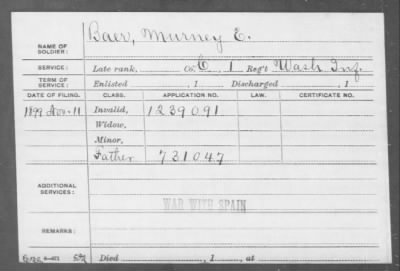 NAME OF SOLDIER: Baer, Murney E.
SERVICE: Late rank, Co. 6, 1 Reg't Wash Inf.
TERM OF SERVICE: Enlisted , 1 Discharged , 1
DATE OF FILING. CLASS. APPLICATION NO. LAW. CERTIFICATE NO.
1899 Nov-11 Invalid, 1239091
Widow,
Minor,
Father 731047
ADDITIONAL SERVICES:
WAR WITH SPAIN
REMARKS:
Died , 1 , at